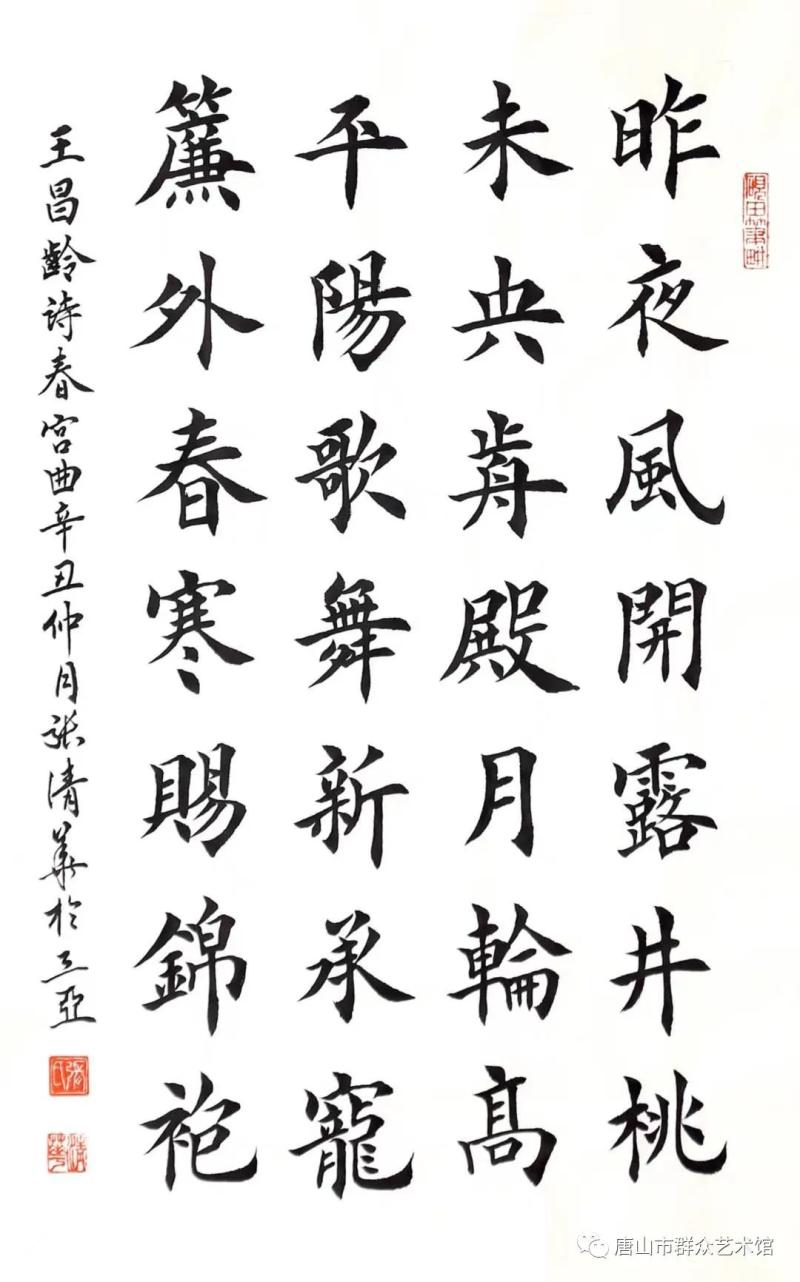 昨夜風開露井桃
未央歬殿月輪高
平陽歌舞新承寵
簾外春寒賜錦袍
王昌齡詩春宮曲辛丑仲月張清華於三亞
張氏
清華
唐山市群众艺术馆